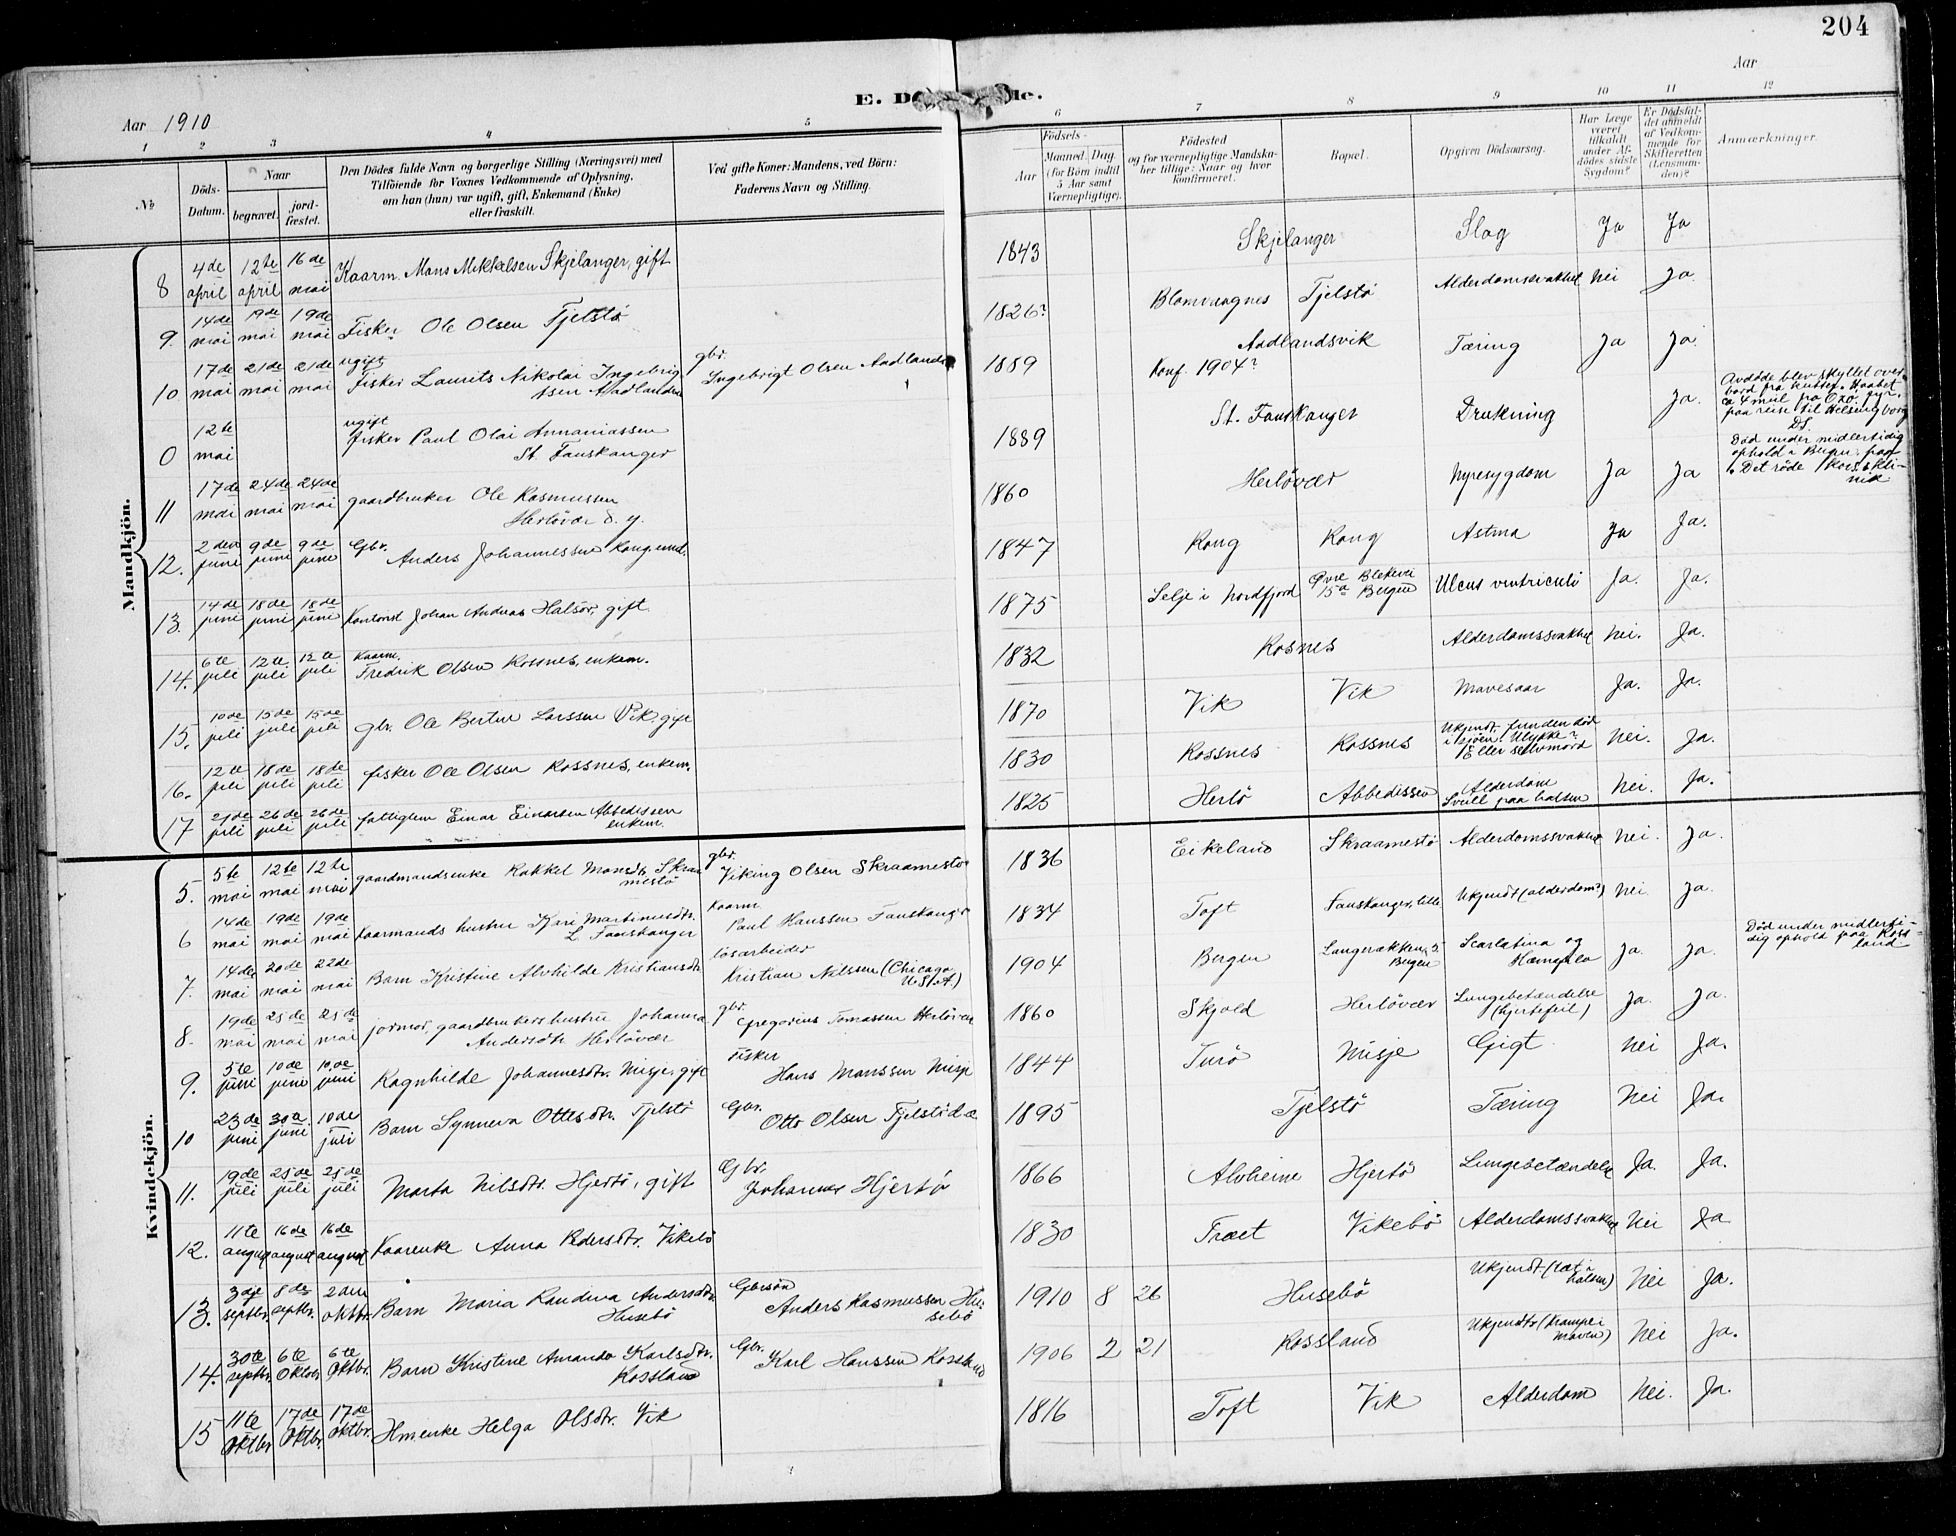 204
E. D
de.
Aar 1910
Aar
1 2 3 4 5 6 7 8 9 10 11 12
No
Döds-Datum.
Naar
begravet.
jord-fæstet.
Den Dödes fulde Navn og borgerlige Stilling (Næringsvei) med
Tilföiende for Voxnes Vedkommende af Oplysning,
om han (hun) var ugift, gift, Enkemand (Enke)
eller fraskilt.
Ved gifte Koner: Mandens, ved Börn:
Faderens Navn og Stilling.
Födsels-
Aar
Maaned.
Dag.
(for Börn indtil
5 Aar samt
Værnepligtige).
Födested
og for værnepligtige Mandska-
ber tillige: Naar og hvor
konfirmeret.
Bopæl.
Opgiven Dödsaarsag.
Har Læge
været
tilkaldt
under Af-
dödes sidste
Sygdom?
Er Dödsfal-
det anmeldt
af Vedkom-
mende for
Skifteretten
(Lensman-
den)?
Anmærkninger.
Mandkjön.
8 4de april 12te april 16de mai Kaarm. Mons Mikkelsen Skjelanger, gift 1843 Skjelanger Slag Ja Ja
9. 14de mai 19de mai 19de mai Fisker Ole Olsen Tjelstö 1826? Blomvaagnes Tjelstö Alderdomssvakhet Nei Ja
10 17de mai 21de mai 21de mai ugift Fisker Laurits Nikolai Ingebrig-
tsen Aadlandsv gbr. Ingebrigt Olsen Aadlands 1889 Konf. 1904? Aadlandsvik Tæring Ja Ja
0 12te mai ugift fisker Paul Olai Annaniassen
St. Fauskanger 1889 St. Fauskanger Drukning Ja. Avdøde blev skyllet over-
bord fra kutter "Haabet"
ca 4 mil fra Oxö fyr,
paa reise til Helsingborg
11 17de mai 24de mai 24de mai gaardbruker Ole Rasmussen
Herlövær d. y. 1860 Herlövær Nyresygdom Ja Ja DS.
Död under midlertidig
ophold i Bergen, paa
"Det röde Kors" kli-
nik
12. 2den juni 9de juni 9de juni Gbr. Anders Johannessen Rong, enkem. 1847 Rong Rong Astma Ja Ja.
13. 14de juni 18de juni 18de juni Kontorist Johan Andreas Halsör, gift 1875 Selje i Nordfjord Øvre Blekevei
15a Bergen Ulcus ventriculi Ja. Ja.
14. 6te juli 12te juli 12te juli Kaarm. Fredrik Olsen Rossnes, enkem. 1832 Rosnes Alderdomssvakhet Nei. Ja.
15. 10de juli 15de juli 15de juli gbr. Ole Bertin Larssen Vik, gift 1870 Vik Vik Mavesaar Ja. Ja.
16. 12te juli 18de juli 18de juli fisker Ole Olsen Rossnes, enkem. 1830 Rossnes Rossnes Ukjendt, funden död
i sjöen. Ulykke?
Eller selvmord Nei. Ja.
17 21de juli 26de juli 26de juli fattiglem Einar Einarsen Abbedissen
enkem. 1825 Herlö Abbedissen Alderdom
Svull paa halsen Nei. Ja.
Kvindekjön.
5. 5te mai 12te mai 12te mai gaardmandsenke Rakkel Monsdtr. Skraa-
mestö gbr. Viking Olsen Skraamestö 1836 Eikeland Skraamestö Alderdomssvakhet Nei. Ja.
6 14de mai 19de mai 19de mai Kaarmands hustru Kari Martinusdtr.
L. Fauskanger Kaarm. Paul Hanssen Fauskanger 1834 Toft Fauskanger, lille Ukjendt (alderdom?) Nei. Ja.
7. 14de mai 20de mai 22de mai Barn Kristine Alvhilde Kristiansdtr. lösarbeider Kristian Nilssen (Chicago
U.S.A.) 1904 Bergen Langerækken,
Bergen Scarlatina og Ja. Ja. Död under midlerti-
dig ophold paa Ross-
land
8. 19de mai 25de mai 25de mai jormor, gaardbrukers hustru Johanna
Andersdtr. Herlövær gbr. Gregorius Tomassen Herlövær 1860 Skjold Herlövær Lungebetændelse
(hjertefeil) Ja. Ja.
9. 5te juni 10de juni 10de juni Ragnhilde Johannesdtr. Misje, gift Fisker Hans Monssen Misje 1844 Turö Misje Gigt Nei Ja.
10 23de juni 30te juni 10de juli Barn Synneva Ottesdtr. Tjelstö Gbr. Otto Olsen Tjelstö d.æ. 1895 Tjelstö Tæring Nei Ja.
11. 19de juli 25de juli 25de juli Marta Nilsdtr. Hjertö, gift Gbr. Johannes Hjertö 1866 Alvheim Hjertö Lungebetændelse Ja. Ja.
12. 11te august 16de august 16de august Kaarenke Anna Pedersdtr. Vikebö 1830 Træet Vikebö Alderdomssvakhet Nei Ja
13. 3dje septbr. 8de septbr. 2den oktbr. Barn Maria Randina Andersdtr.
Husebö Gbrsön Anders Rasmussen Hu-
sebö 1910 8 26 Husebö Ukjendt (tæt i
halsen) Nei Ja.
14. 30te septbr. 6te Oktobr 6te Oktbr. Barn Kristine Amanda Karlsdtr.
Rossland Gbr. Karl Hanssen Rossland 1906 2 21 Rossland Ukjendt (krampe i
maven) Nei Ja.
15 11te Oktbr 17de Oktbr. 17de Oktbr. Hmenke Helga Olsdtr. Vik 1816 Toft Vik Alderdom Nei. Ja.